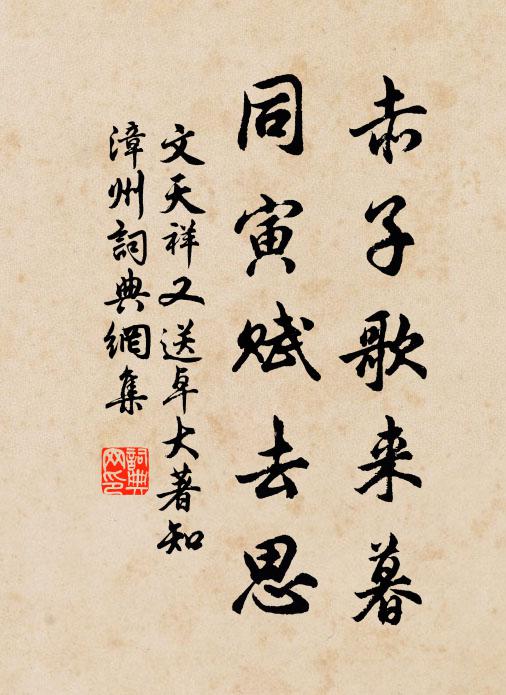 赤子歌来暮
同寅赋去思
文天祥又送卓大著知
漳州詞典網集
詞典网印